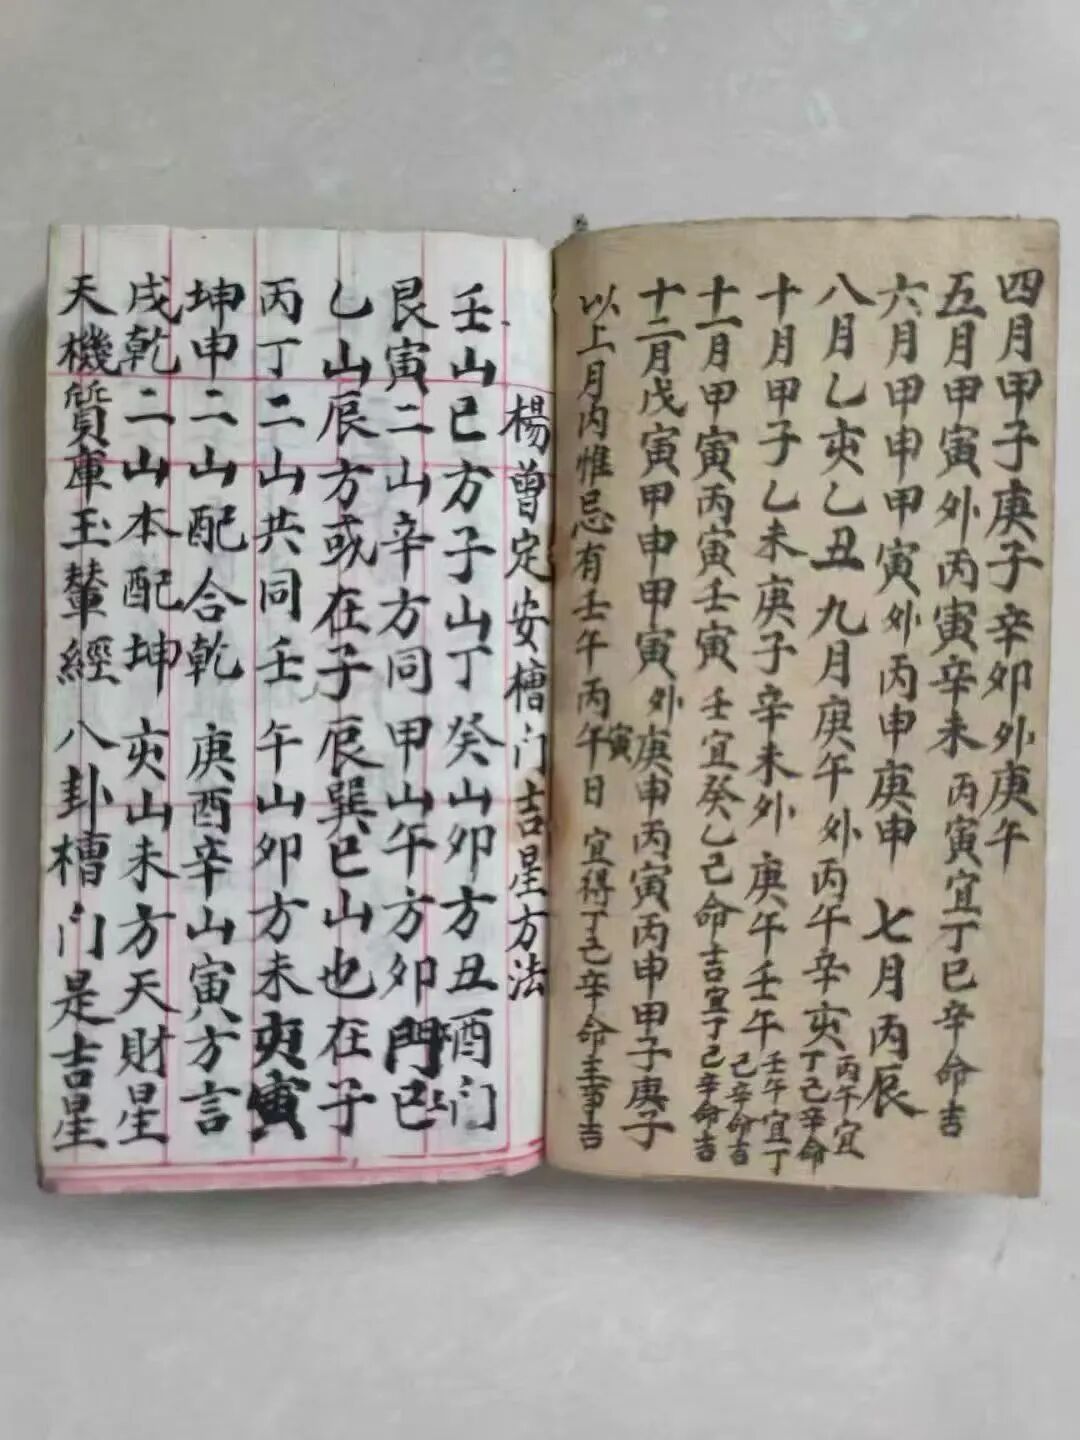 四月甲子庚子辛卯外庚午
五月甲寅外丙寅辛未丙寅宜丁巳辛命吉
六月甲申甲寅外丙申庚申 七月丙辰
八月乙亥乙丑九月庚午外丙午辛亥丙午宜丁己辛命
十月甲子乙未庚子辛未外庚午壬午壬午宜丁己辛命吉
十一月甲寅丙寅壬寅壬宜癸乙己命吉宜丁己辛命吉
十二月戊寅甲申甲寅外庚申丙寅丙申甲子庚子
寅
以上月内惟忌有壬午丙午日宜得丁己辛命主事吉
楊曾定安槽门吉星方法
壬山巳方子山丁癸山卯方丑酉门
艮寅二山辛方同甲山午方卯門已
乙山辰方或在子辰巽巳山也在子
丙丁二山共同壬午山卯方未亥寅
坤申二山配合乾庚酉辛山寅方言
戌乾二山本配坤亥山未方天財星
天機質庫玉輦經八卦槽门是吉星